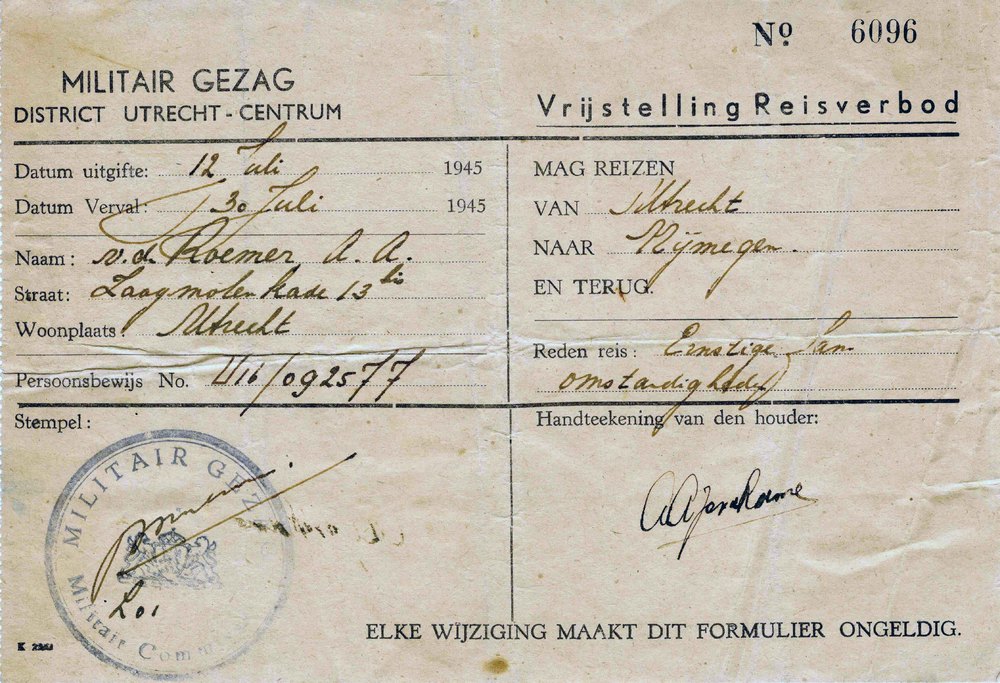 Nº 6096
MILITAIR GEZAG
DISTRICT UTRECHT-CENTRUM
Vrijstelling Reisverbod
Datum uitgifte: 12 Juli 1945
Datum Verval: 30 Juli 1945
Naam: v.d. Roemer A. A.
Straat: Zaagmolenkade 13 bis
Woonplaats: Utrecht
Persoonsbewijs No. U16/092577
MAG REIZEN
VAN Utrecht
NAAR Nijmegen.
EN TERUG.
Reden reis: Ernstige fam.
omstandigheden
Stempel:
MILITAIR GEZ
Militair Comm
Handteekening van den houder:
ELKE WIJZIGING MAAKT DIT FORMULIER ONGELDIG.